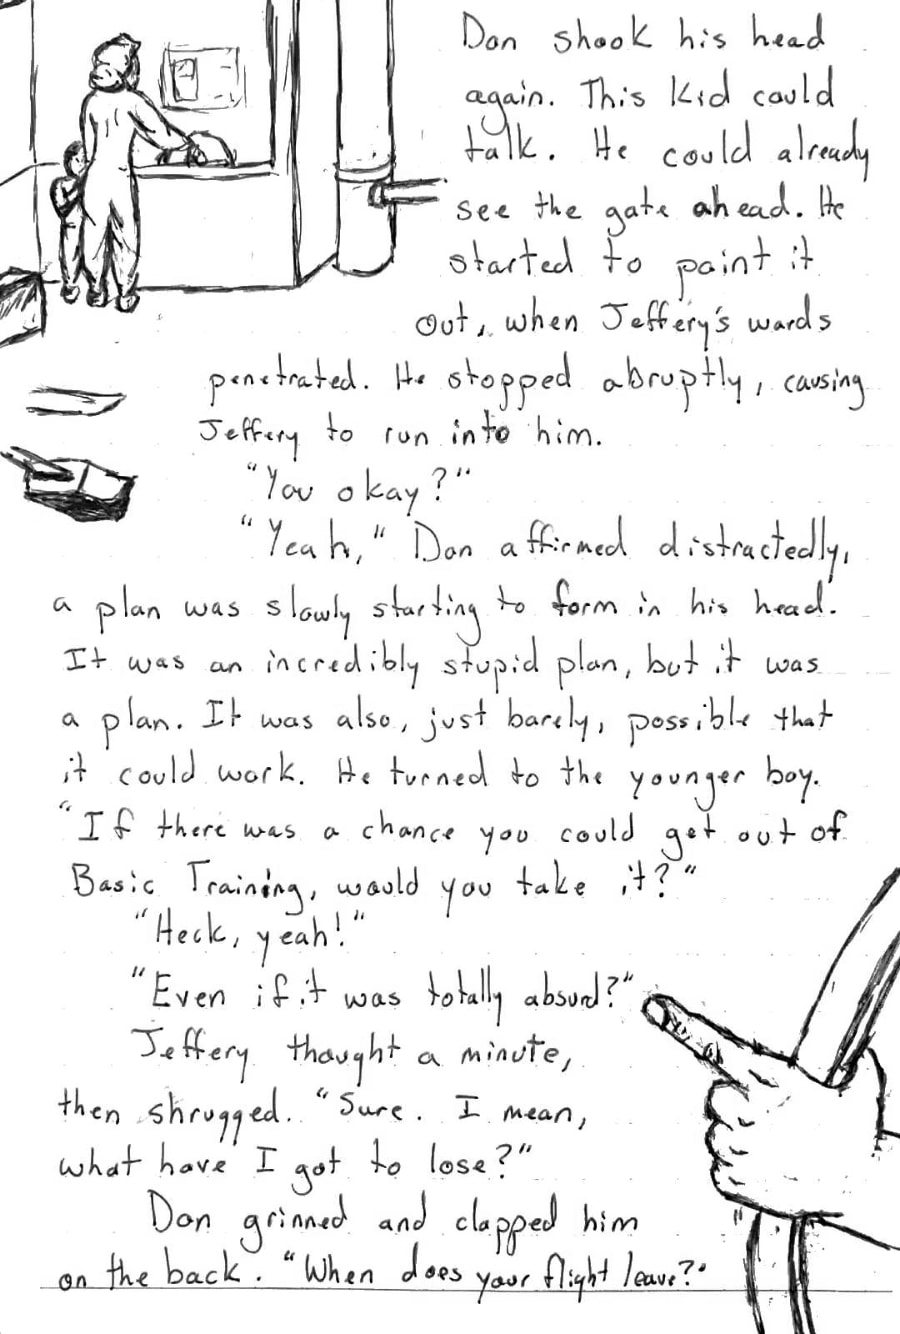 Don shook his head
again. This kid could
talk. He could already
see the gate ahead. He
started to point it
out, when Jeffery's words
penetrated. He stopped abruptly, causing
Jeffery to run into him.
"You okay?"
"Yeah," Don affirmed distractedly,
a plan was slowly starting to form in his head.
It was an incredibly stupid plan, but it was
a plan. It was also, just barely, possible that
it could work. He turned to the younger boy.
"If there was a chance you could get out of
Basic Training, would you take it?"
"Heck, yeah!"
"Even if it was totally absurd?"
Jeffery thought a minute,
then shrugged. "Sure. I mean,
what have I got to lose?"
Don grinned and clapped him
on the back. "When does your flight leave?"